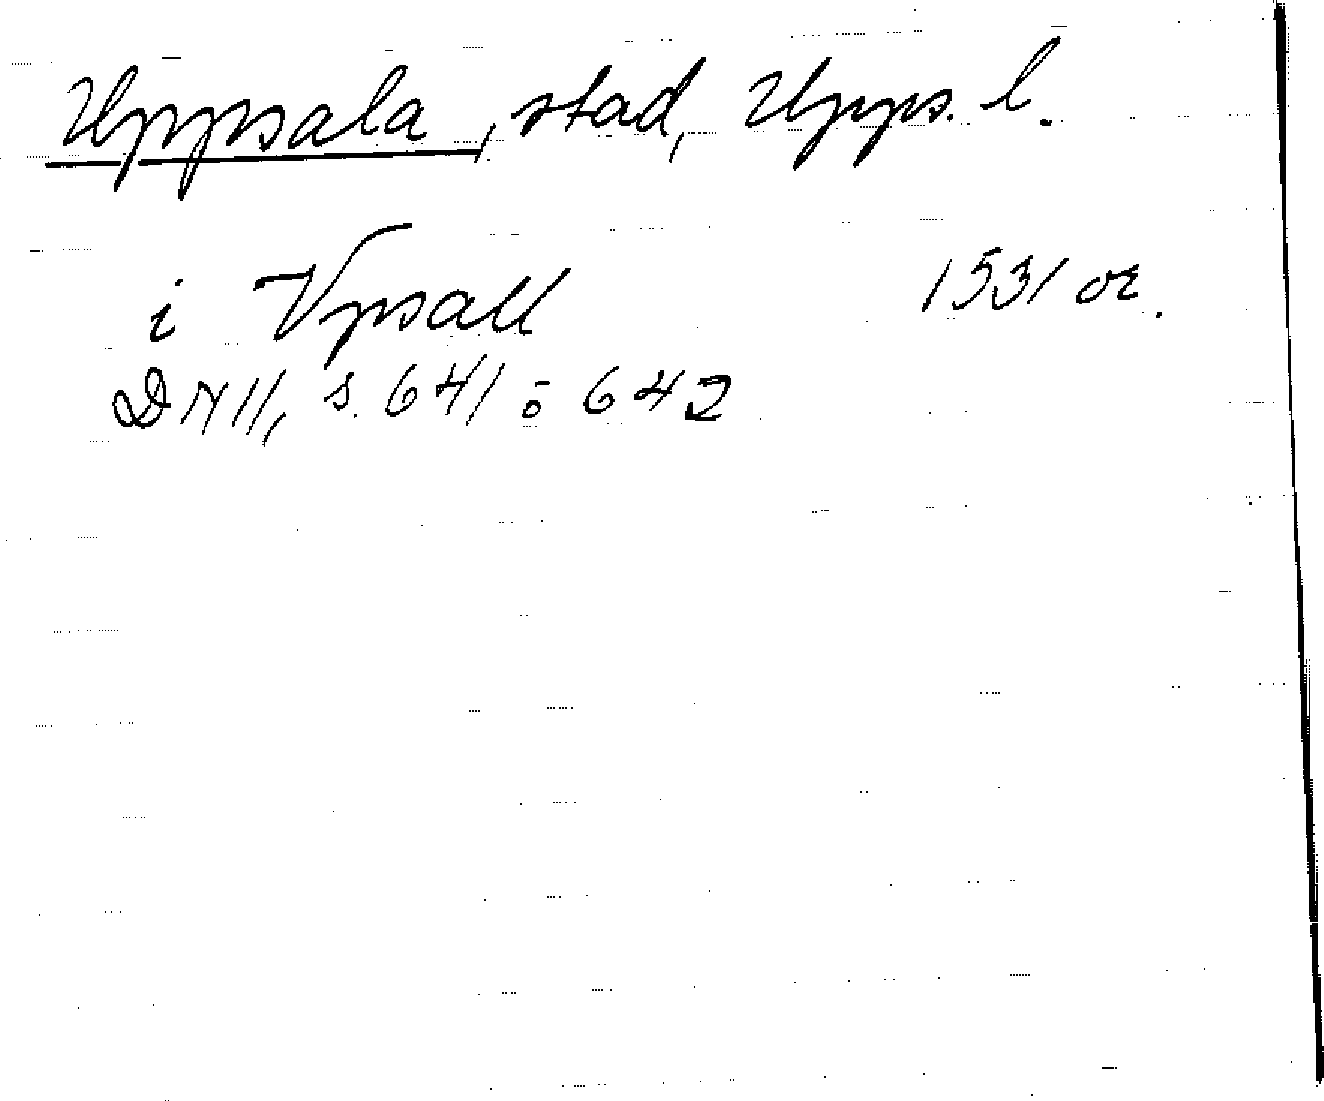 Uppsala, stad, Upps. l.
i Vpsall 1531 or.
DN II, s. 641 o 642